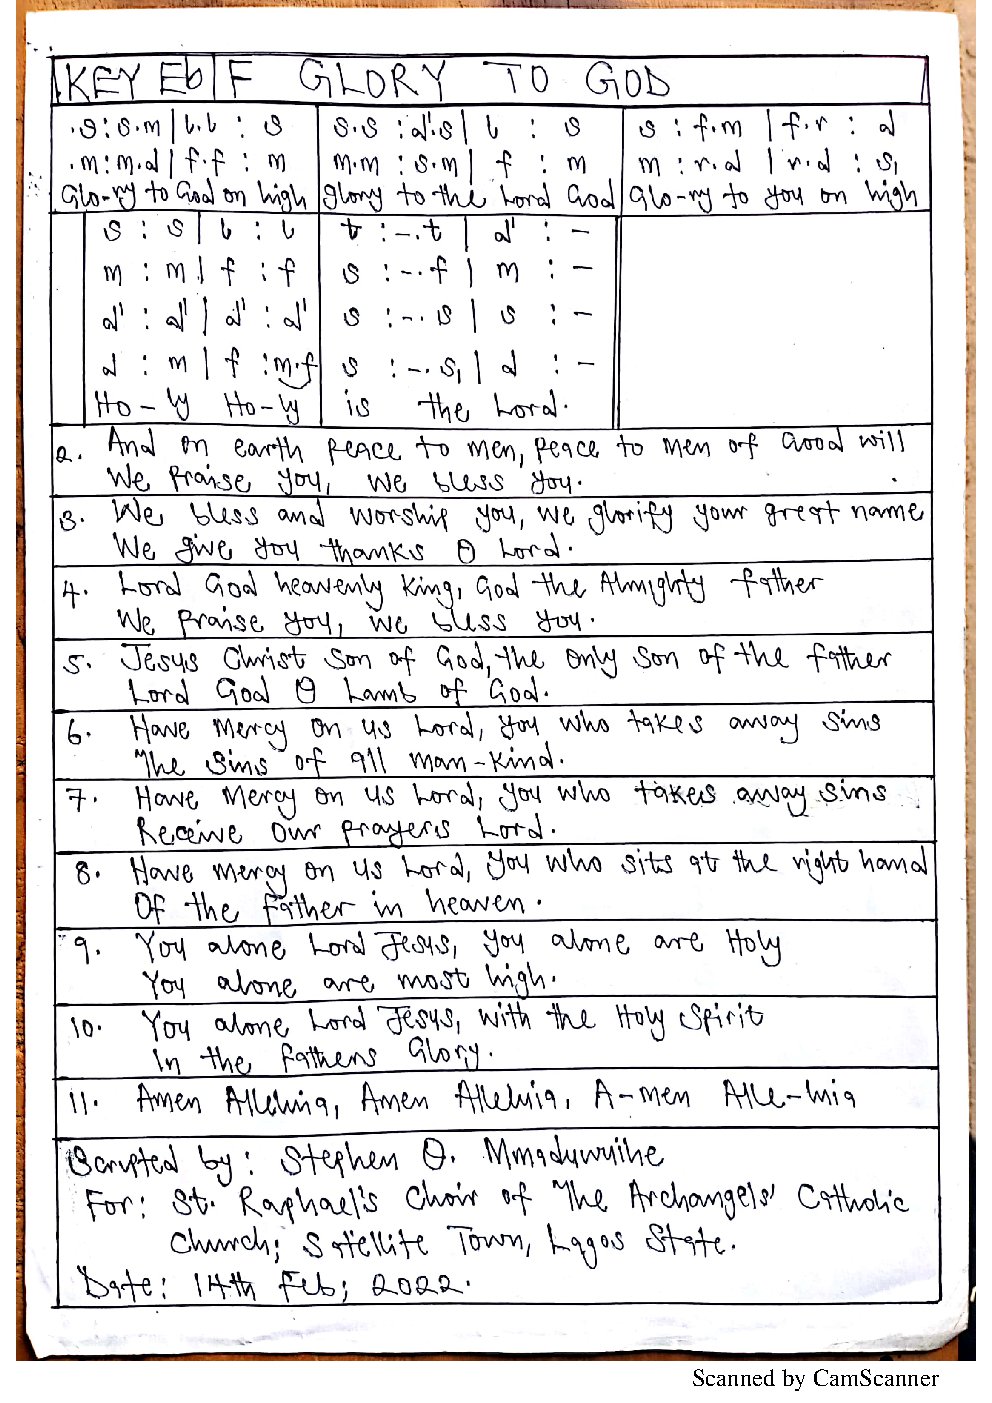 KEY Eb F GLORY TO GOD
.s : s.m | l.l : s   s.s : d'.s | l : s   s : f.m | f.r : d
.m : m.d | f.f : m   m.m : s.m | f : m   m : r.d | r.d : s₁
Glo-ry to God on high   glory to the Lord God   Glo-ry to you on high
s : s | l : l   t : -.t | d' : -
m : m | f : f   s : -.f | m : -
d' : d' | d' : d'   s : -.s | s : -
d : m | f : m.f   s : -.s₁ | d : -
Ho-ly Ho-ly   is the Lord.
2. And on earth peace to men, peace to men of Good will
We praise you, we bless you.
3. We bless and worship you, we glorify your great name
We give you thanks O Lord.
4. Lord God heavenly King, God the Almighty father
We praise you, we bless you.
5. Jesus Christ Son of God, the only Son of the father
Lord God O Lamb of God.
6. Have Mercy on us Lord, you who takes away sins
The sins of all man-kind.
7. Have Mercy on us Lord, you who takes away sins
Receive our prayers Lord.
8. Have mercy on us Lord, you who sits at the right hand
Of the father in heaven.
9. You alone Lord Jesus, you alone are Holy
You alone are most high.
10. You alone Lord Jesus, with the Holy Spirit
In the fathers Glory.
11. Amen Alleluia, Amen Alleluia, A-men Alle-luia
Scripted by: Stephen O. Mmaduwuihe
For: St. Raphael's Choir of The Archangels' Catholic
Church; Satellite Town, Lagos State.
Date: 14th Feb; 2022.
Scanned by CamScanner